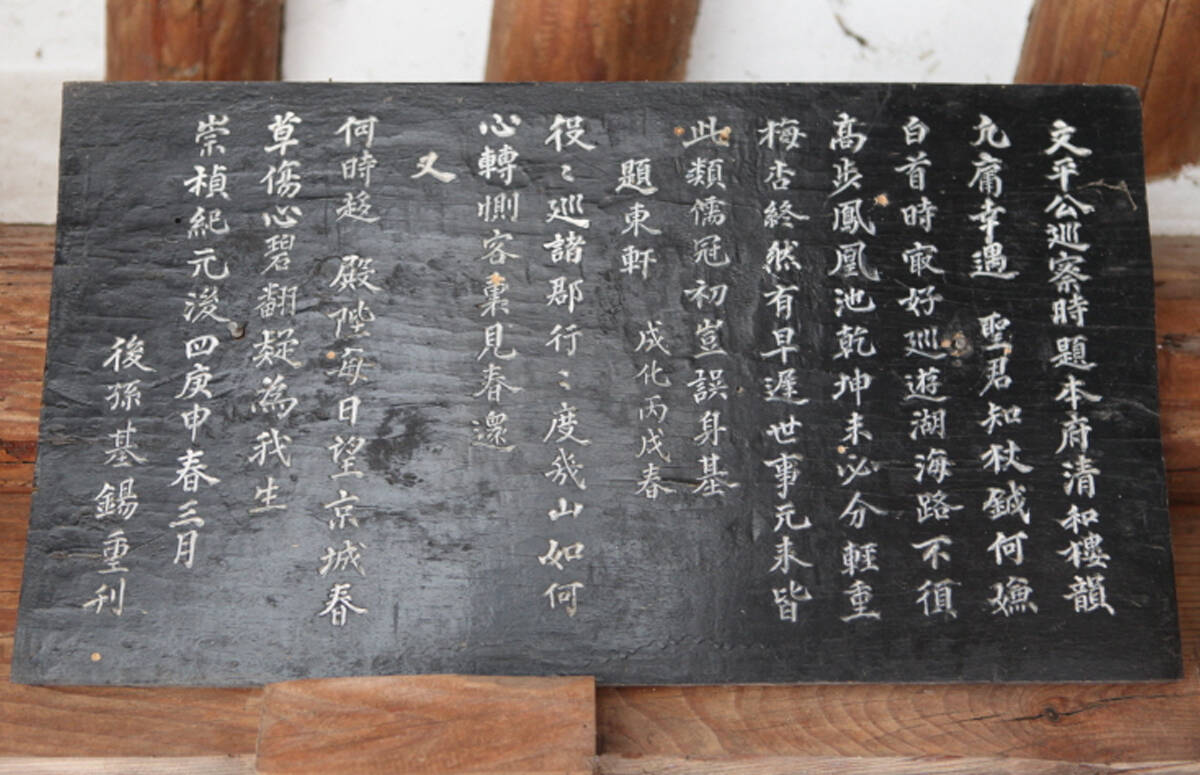 文平公巡察時題本府清和樓韻
凡庸幸遇 聖君知杖鉞何嫌
白首時寂好巡遊湖海路不須
高步鳳凰池乾坤未必分輕重
梅杏終然有早遲世事元来皆
此類儒冠初豈誤身基
題東軒 成化丙戌春
役〻巡諸郡行〻度幾山如何
心轉惻客裏見春還
又
何時趁 殿陛每日望京城春
草傷心碧翻疑為我生
崇禎紀元後四庚申春三月
後孫基錫重刊